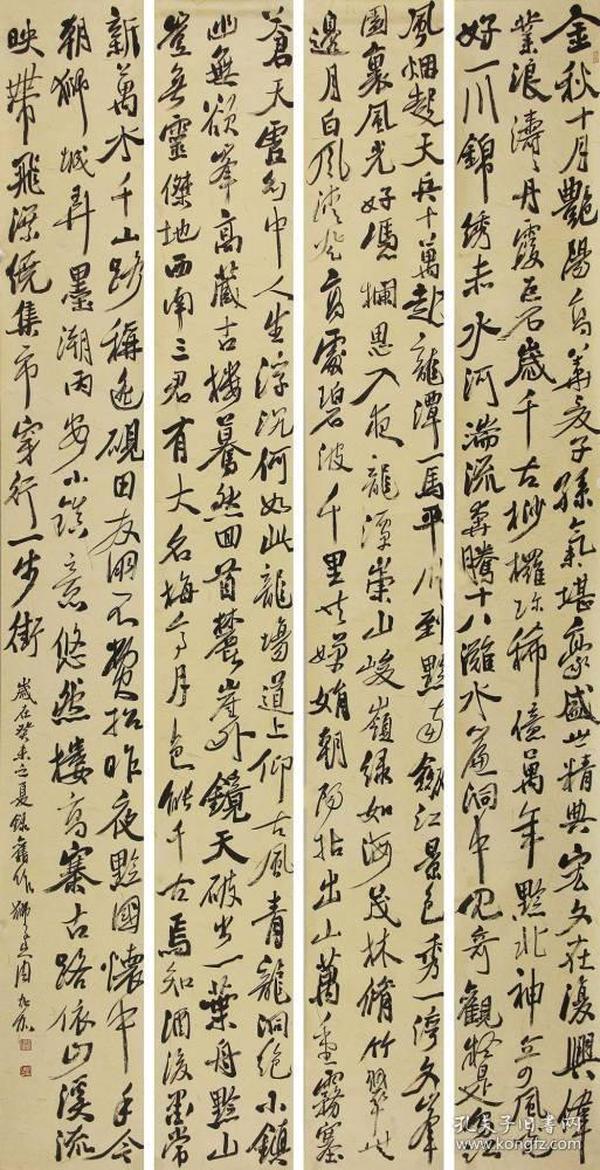 金秋十月艳陽高華夏子孫氣堪豪盛世精典宏文在復興偉
業浪濤丹霞巨石歲千古桫欏珍稀億萬年黔北神奇風
好一川錦绣赤水河湍流奔騰十八灘水簾洞中見奇觀
風烟起天兵十萬赴龍潭一馬平川到黔南劍江景色秀一湾文峯
園裏風光好憑欄思入夜龍潭崇山峻嶺緑如海茂林脩竹翠
邊月白風清登高處碧波千里嬋娟朝陽拈出山萬重霧塞
蒼天雲幻中人生浮沉何如此龍場道上仰古風青龍洞絶小鎮
幽無欲峯高藏古楼驀然回首麓崖外鏡天破出一葉舟黔山
豈無靈傑地西南三君有大名梅亭月色能千古焉知酒後墨常
新萬水千山路稱遥硯田友朋不費招昨夜黔國懷中手今
朝獅城弄墨潮丙安小鎮意悠然楼高寨古路依山溪流
映帶飛深僥集市穿行一步街
歲在癸未之夏録舊作
孔夫子旧书网
www.kongfz.com